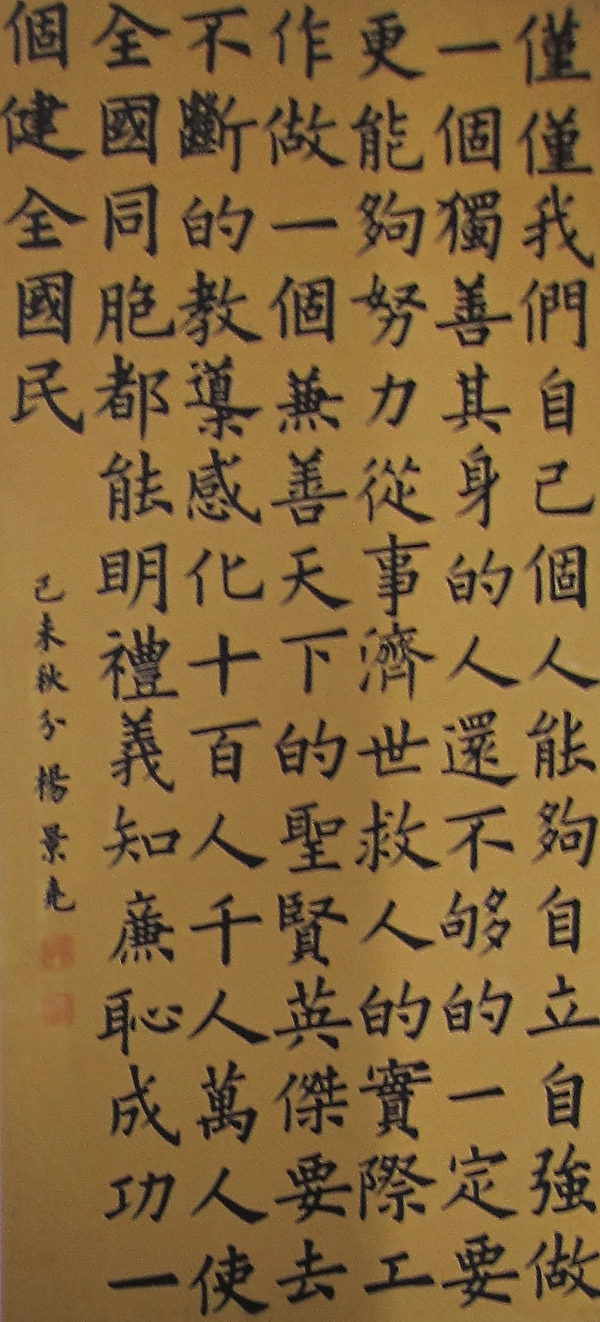 僅僅我們自己個人能夠自立自強做
一個獨善其身的人還不够的一定要
更能夠努力從事濟世救人的實際工
作做一個兼善天下的聖賢英傑要去
不斷的教導感化十百人千人萬人使
全國同胞都能明禮義知廉恥成功一
個健全國民
己未秋分楊景堯